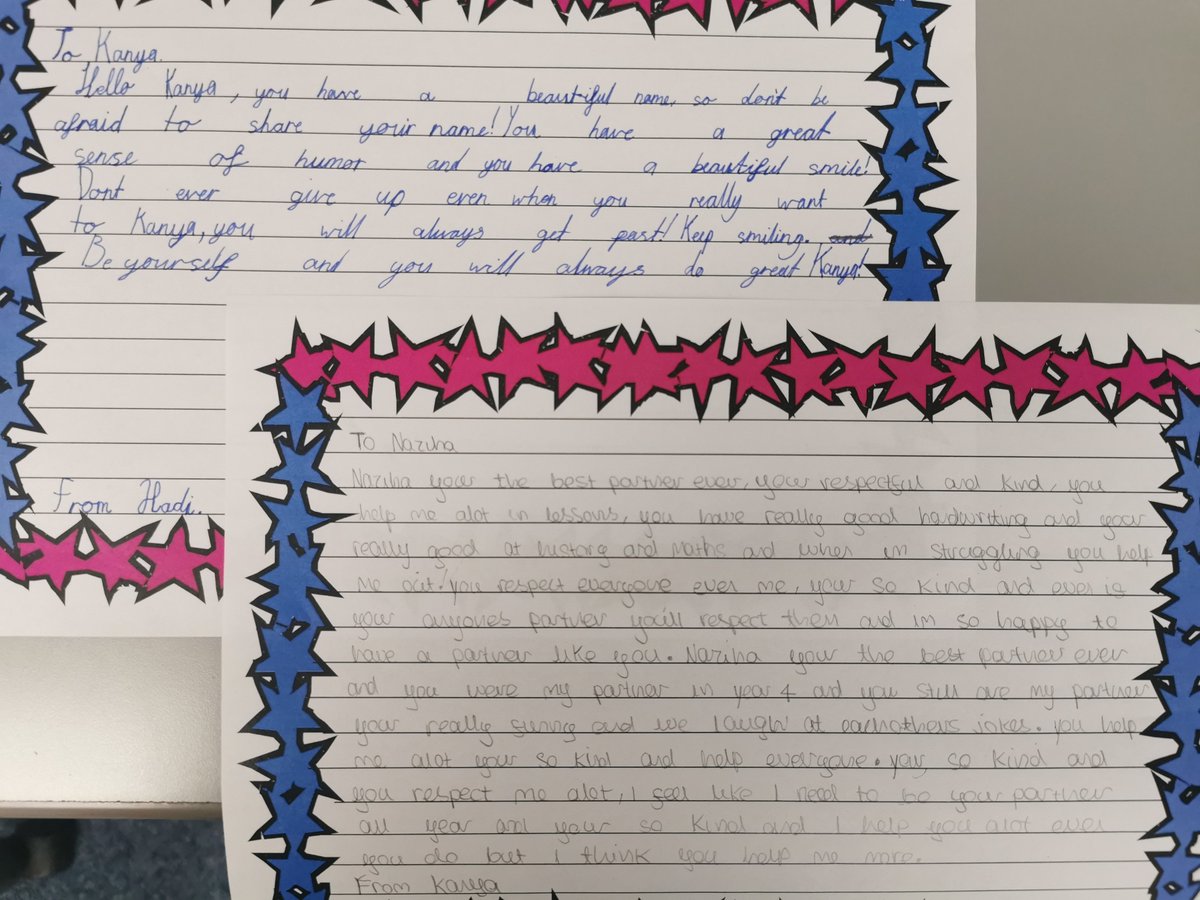 To Kanya.
Hello Kanya, you have a beautiful name, so don't be
afraid to share your name! You have a great
sense of humor and you have a beautiful smile!
Dont ever give up even when you really want
to Kanya, you will always get past! Keep smiling. and
Be yourself and you will always do great Kanya!
From Hadi.
To Naziha
Naziha your the best partner ever, your respectful and kind, you
help me alot in lessons, you have really good handwriting and your
really good at history and maths and when im struggling you help
me out! you respect everyone even me, your so kind and even if
your anyones partner you'll respect them and im so happy to
have a partner like you. Naziha your the best partner ever
and you were my partner in year 4 and you still are my partner
your really funny and we laugh at eachothers jokes. you help
me alot your so kind and help everyone. your so kind and
you respect me alot, I feel like I need to be your partner
all year and your so kind and I help you alot
you do but I think you help me more.
From Kanya